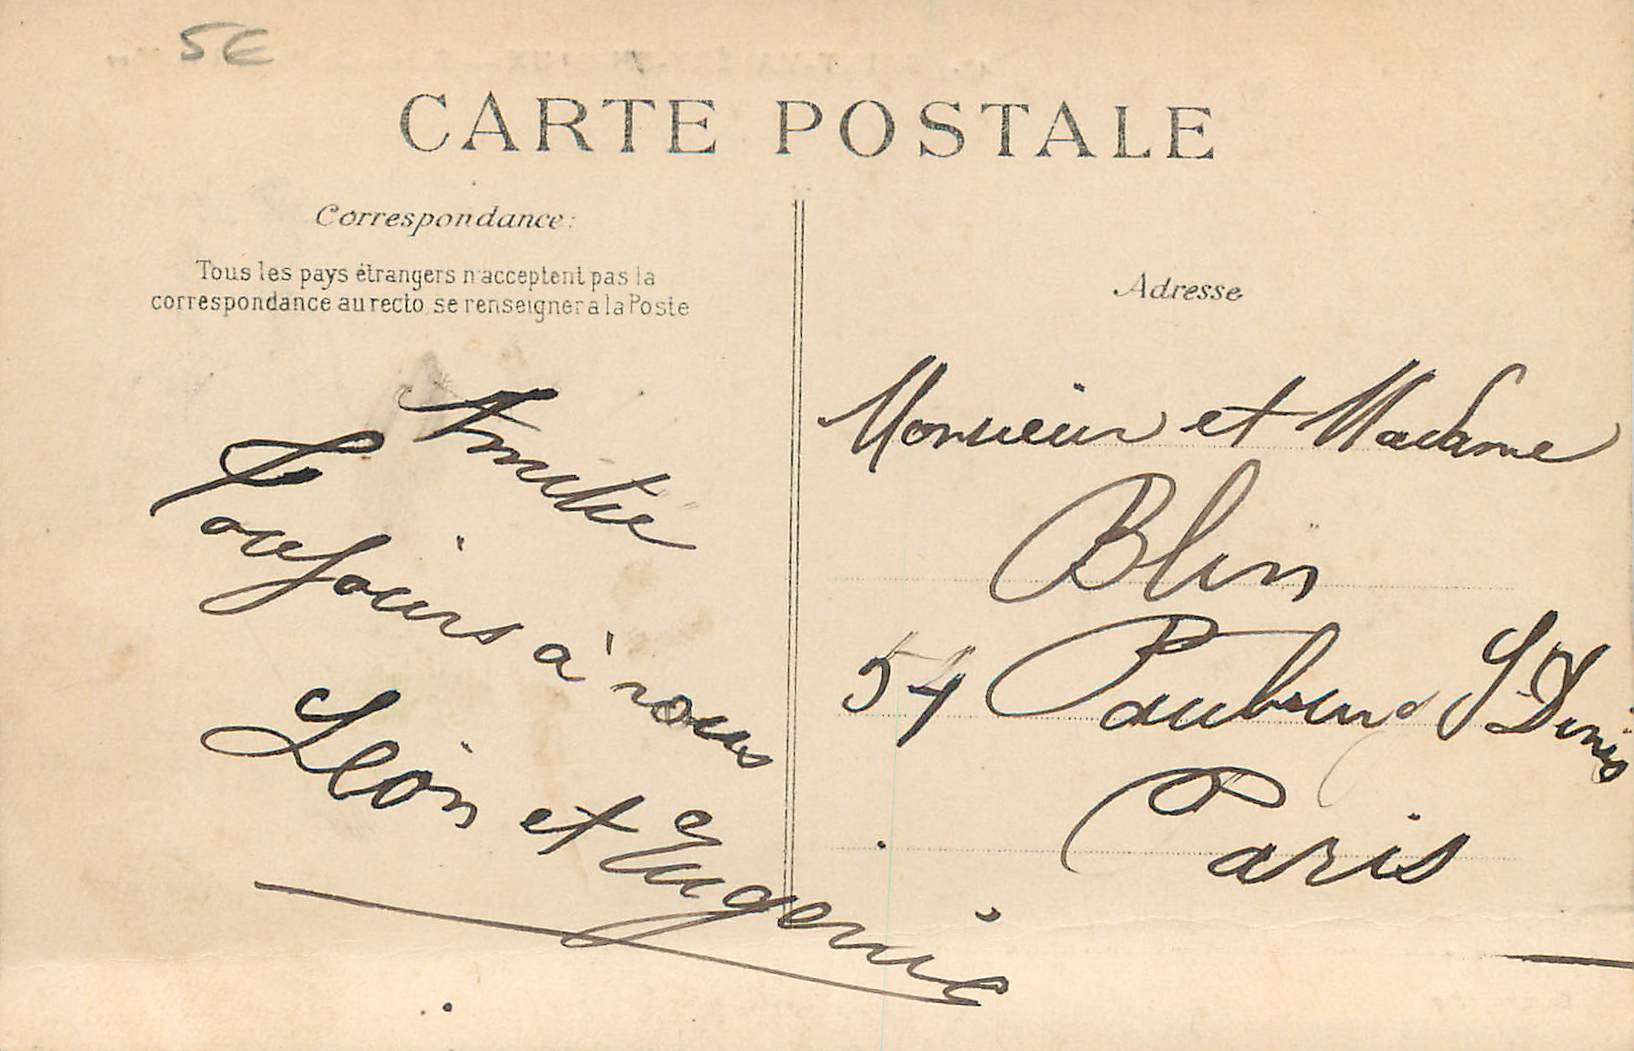 5€
CARTE POSTALE
Correspondance:
Tous les pays étrangers n'acceptent pas la
correspondance au recto, se renseigner a la Poste
Amitié
Toujours à vous
Léon et Eugenie
Adresse
Monsieur et Madame
Blin
54 Faubourg St Denis
Paris